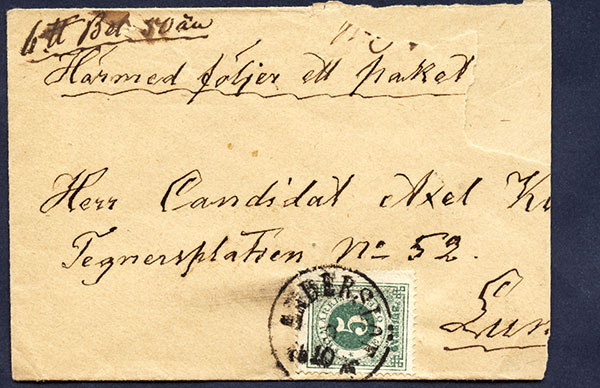 6 ℔ Bet 50 öre
Härmed följer ett paket
Herr Candidat Axel K
Tegnersplatsen No 52.
Lun
ANDERSLÖF
5